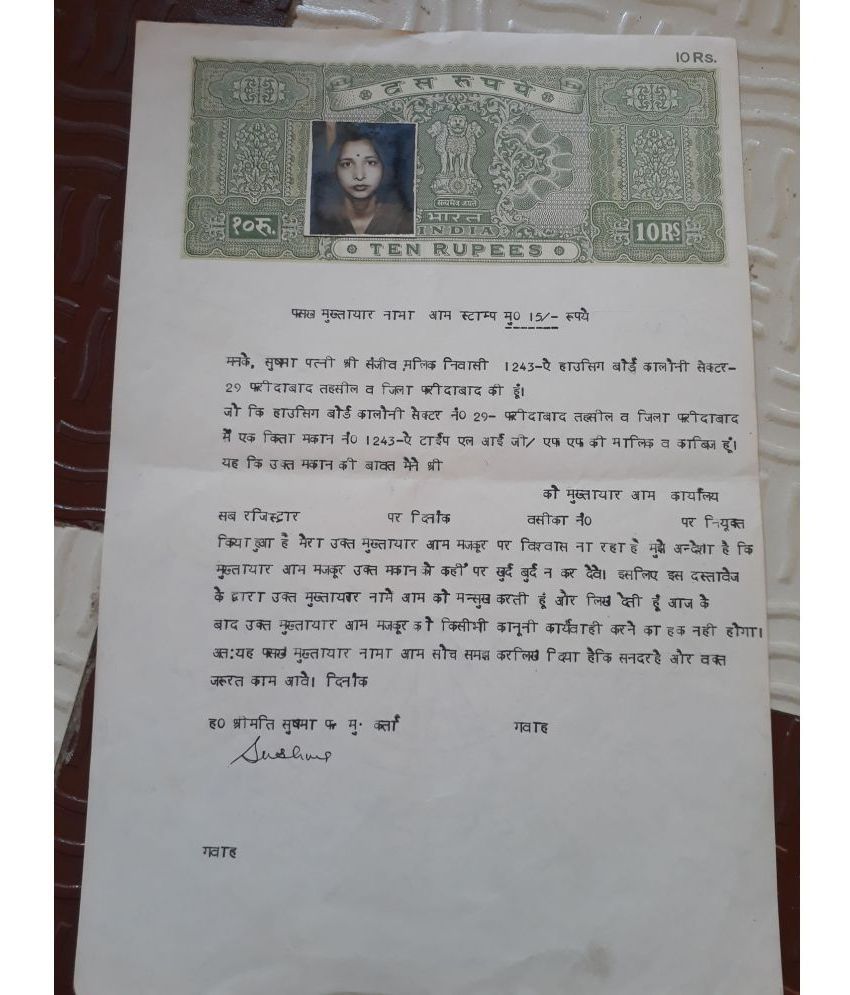 10 Rs.
दस रुपये
सत्यमेव जयते
भारत
INDIA
१०रु.
10RS
TEN RUPEES
फसख मुख्तायार नामा आम स्टाम्प मु0 15/- रूपये
मनके, सुषमा पत्नी श्री संजीव मलिक निवासी 1243-ऐ हाउसिग बोर्ड कालोनी सेक्टर-
29 फरीदाबाद तहसील व जिला फरीदाबाद की हूं।
जो कि हाउसिग बोर्ड कालोनी सेक्टर नं0 29- फरीदाबाद तहसील व जिला फरीदाबाद
में एक किता मकान नं0 1243-ऐ टाईप एल आई जी/ एफ एफ की मालिक व काबिज हूं।
यह कि उक्त मकान की बाबत मैने श्री
को मुख्तायार आम कार्यालय
सब रजिस्ट्रार पर दिनांक वसीका नं0 पर नियुक्त
किया हुआ है मेरा उक्त मुख्तायार आम मजकूर पर विश्वास ना रहा है मुझे अन्देशा है कि
मुख्तायार आम मजकूर उक्त मकान को कहीं पर खुर्द बुर्द न कर देवे। इसलिए इस दस्तावेज
के द्वारा उक्त मुख्तायार नामे आम को मन्सुख करती हूं और लिख देती हूं आज के
बाद उक्त मुख्तायार आम मजकूर को किसीभी कानूनी कार्यवाही करने का हक नही होगा।
अत:यह फसख मुख्तायार नामा आम सोच समझ करलिख दिया हैकि सनदरहे और वक्त
जरूरत काम आवे। दिनांक
ह0 श्रीमति सुषमा फ मु. कर्ता गवाह
Sushma
गवाह